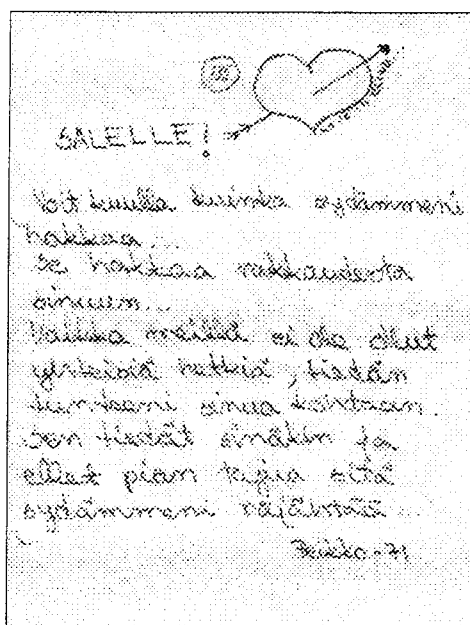 SALELLE!
Voit kuulla kuinka sydämmeni
hakkaa...
Se hakkaa rakkaudesta
sinuun...
Vaikka meillä ei ole ollut
yhteisiä hetkiä, tiedän
tunteeni sinua kohtaan.
Sen tiedät sinäkin ja
ellet pian tajua sitä
sydämmeni räjähtää...
Peikko -71